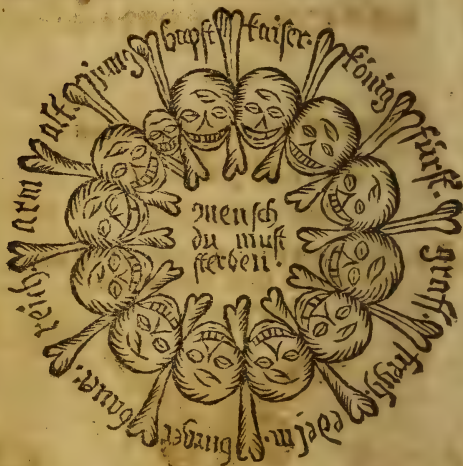 bapst kaiser. könig fürst. graff. freyh. edelm. burger bauer. reich. arm alt jung
mensch
du must
sterben.